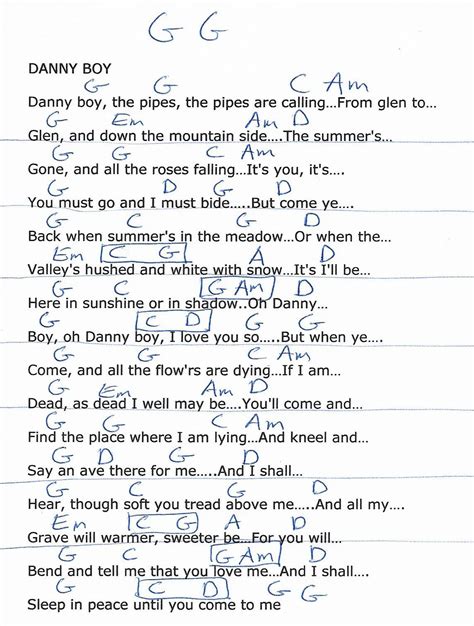 G G
DANNY BOY
G G C Am
Danny boy, the pipes, the pipes are calling...From glen to...
G Em Am D
Glen, and down the mountain side....The summer's...
G G C Am
Gone, and all the roses falling...It's you, it's....
G D G G
You must go and I must bide.....But come ye....
G C G D
Back when summer's in the meadow...Or when the...
Em C G A D
Valley's hushed and white with snow...It's I'll be...
G C G Am D
Here in sunshine or in shadow..Oh Danny...
G C D G G
Boy, oh Danny boy, I love you so.....But when ye....
G G C Am
Come, and all the flow'rs are dying...If I am...
G Em Am D
Dead, as dead I well may be....You'll come and...
G G C Am
Find the place where I am lying...And kneel and...
G D G G
Say an ave there for me.....And I shall...
G C G D
Hear, though soft you tread above me.....And all my....
Em C G A D
Grave will warmer, sweeter be...For you will...
G C G Am D
Bend and tell me that you love me...And I shall....
G C D G G
Sleep in peace until you come to me